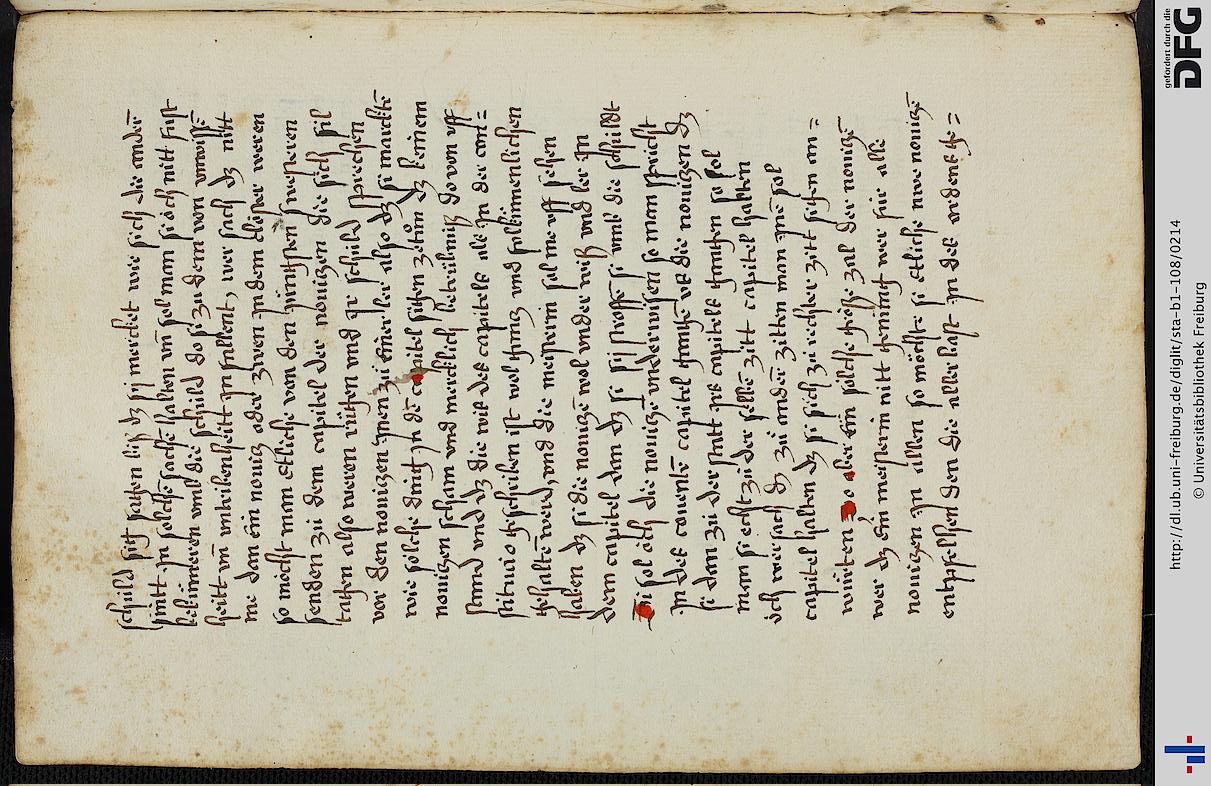 schuld sig sagen biß dz sij mercket wie sich die andern
hintt Jn solche sache halten vn̄ sol man si och nitt hist
bekimeren vmb die schuld do si zu dem von vnwisse
heitt vn̄ vnlibenheitt Jn fallent, wer sach dz nitt
me dan ein nouiz oder zwen Jn dem closter weren
so möcht man etliche von den Jungsten swesteren
senden zu dem capitel der nouizen die sich hil
tagen also weren rüegen vnd Jr schuld sprechen
vor den nouizen Jnen zu einer ler also dz si marckte
wie solche ding Jn de capitel sigen zetun dz keinem
nouizen scham vnd mercklich betrubniß do von vff
stand vnd dz die wiß des capitels als Jn der con=
stitucio geschriben ist wol gantz vnd volkumenlichen
gehalte werd, vnd die meisterin sol me vff sehen
haben dz si die nouize wol vnder wiß vnd ler Jn
dem capitel dan dz si sij stroffe si vmb die schuldt
Si sol och die nouize vnderwisen so man spricht
Jn des couents capitel gange vß die nouizen dz
si dan zu der statt Jrs capitels gangen so sol
man si echt zu der selbe zitt capitel halten
och wer sach dz zu ander zitten man me sol
capitel halten dz si sich zu rechter zitt sigen an=
wurten So aber ein söliche grosse zal der nouize
wer dz ein meisterin nitt genug wer fur alle
nouizen Jn allen so möchte si etliche nuwe nouize
entpfelhen den die aller last Jn des ordens ge=
http://dl.ub.uni-freiburg.de/diglit/sta-b1-108/0214
© Universitätsbibliothek Freiburg
gefördert durch die
DFG